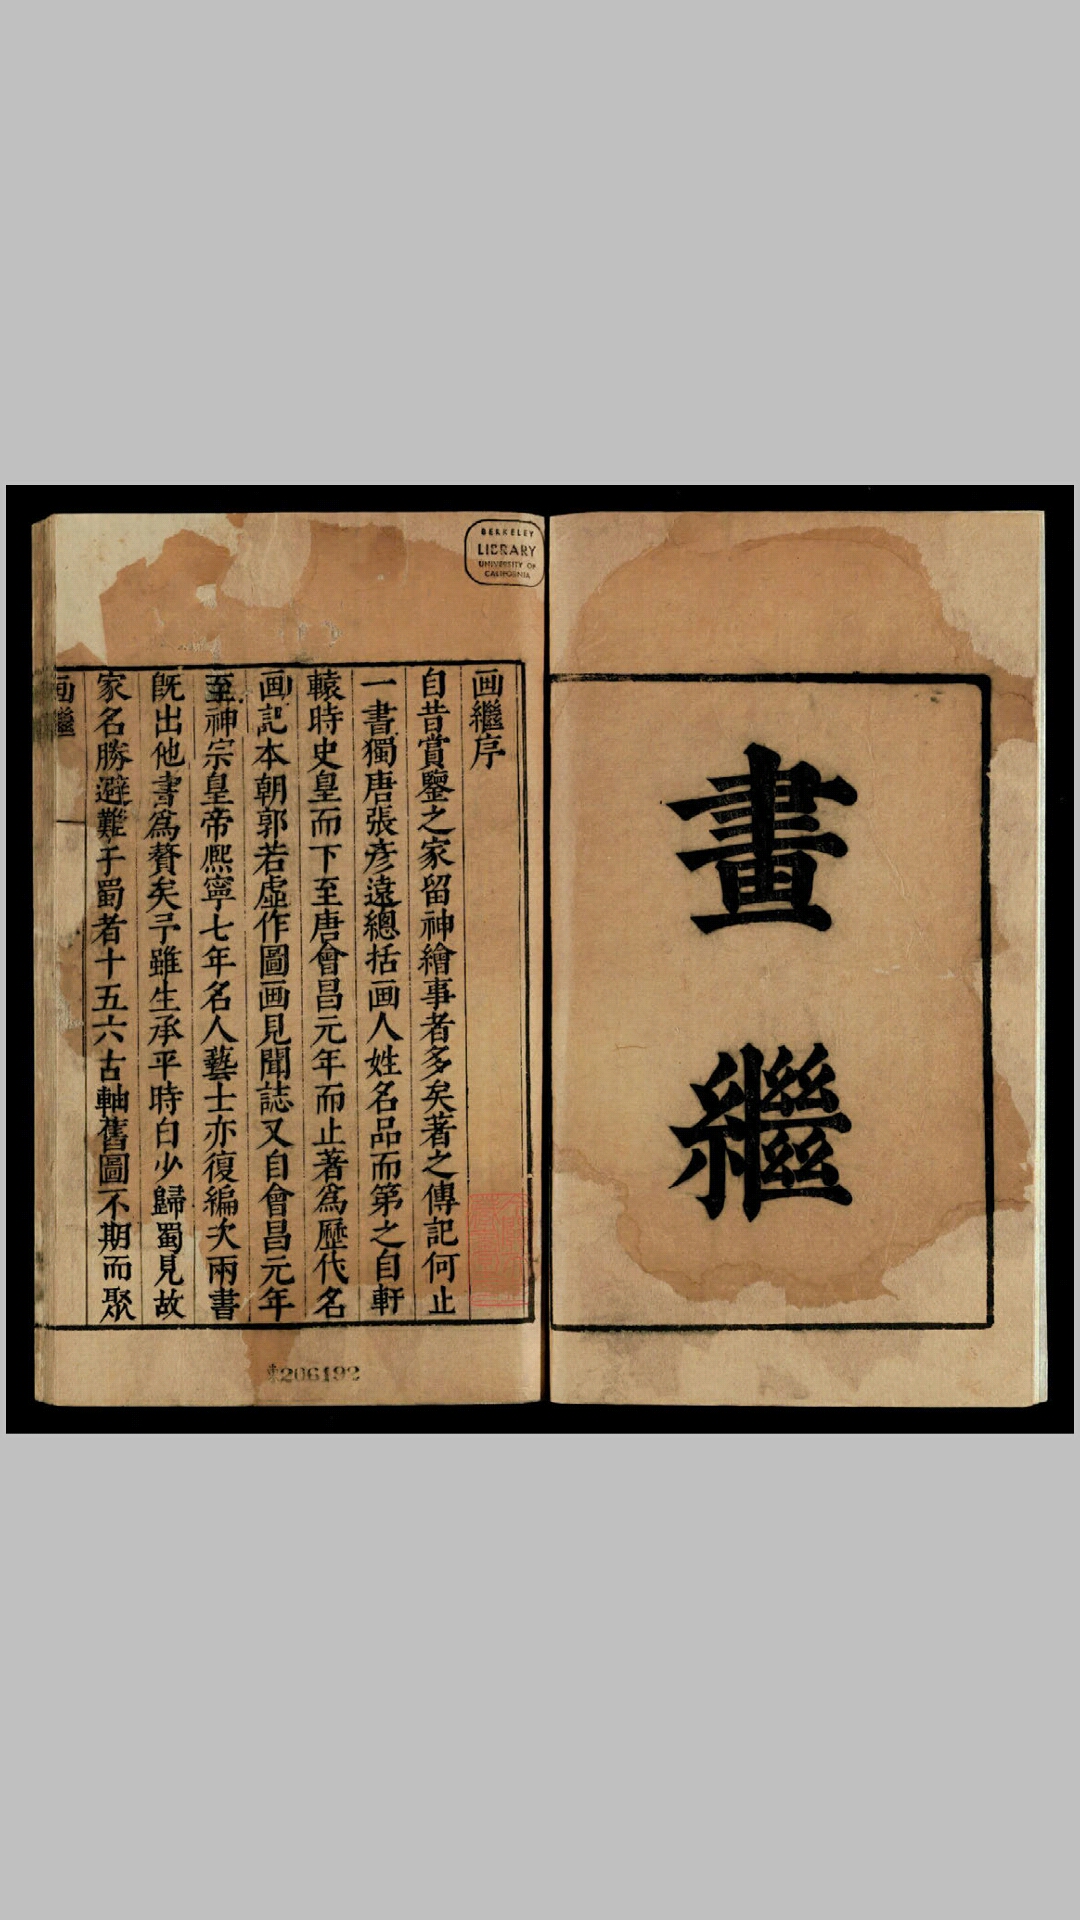 畫繼
画繼序
自昔賞鑒之家留神繪事者多矣著之傳記何止
一書獨唐張彥遠總括画人姓名品而第之自軒
轅時史皇而下至唐會昌元年而止著爲歷代名
画記本朝郭若虛作圖画見聞誌又自會昌元年
至神宗皇帝熙寧七年名人藝士亦復編次兩書
旣出他書爲贅矣予雖生承平時自少歸蜀見故
家名勝避難于蜀者十五六古軸舊圖不期而聚
画繼
BERKELEY
LIBRARY
UNIVERSITY OF
CALIFORNIA
206192